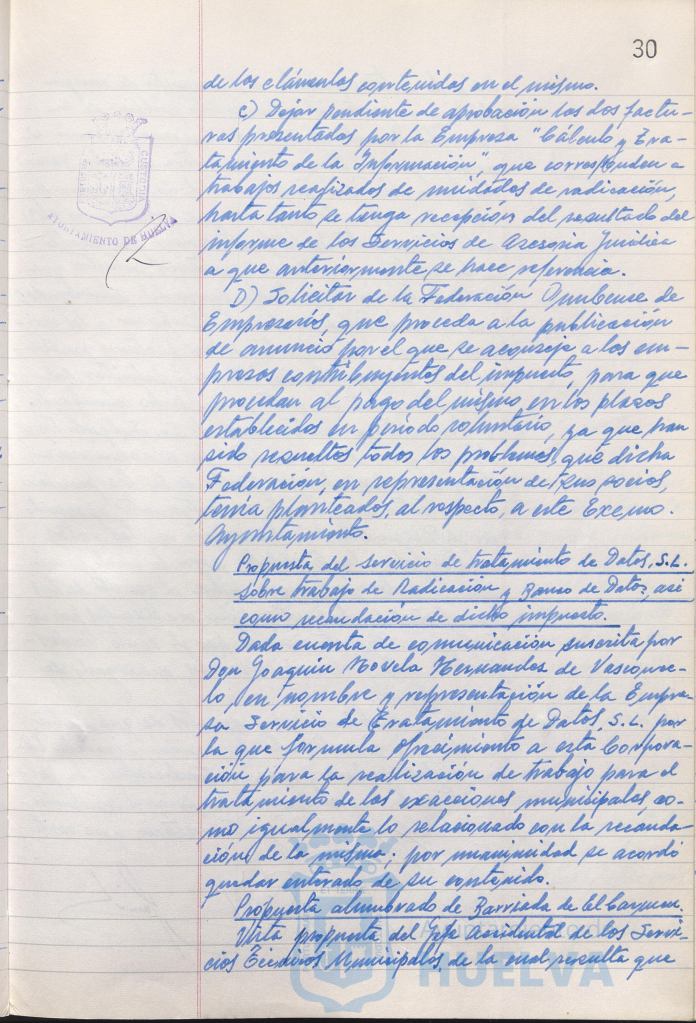 30
de los cláusulas contenidas en el mismo.
C) Dejar pendiente de aprobación las dos factu-
ras presentadas por la Empresa "Cálculo y Tra-
tamiento de la Información", que corresponden a
trabajos realizados de unidades de radicación,
hasta tanto se tenga recepción del resultado del
informe de los Servicios de Asesoria Jurídica
a que anteriormente se hace referencia.
D) Solicitar de la Federación Onubense de
Empresarios, que proceda a la publicación
de anuncio por el que se aconseje a las em-
presas contribuyentes del impuesto, para que
procedan al pago del mismo en los plazos
establecidos en período voluntario, ya que han
sido resueltos todos los problemas, que dicha
Federación, en representación de sus socios,
tenía planteados, al respecto, a este Excmo.
Ayuntamiento.
Propuesta del Servicio de tratamiento de Datos, S.L.
sobre trabajo de Radicación y Banco de Datos, así
como recaudación de dicho impuesto.
Dada cuenta de comunicación suscrita por
Don Joaquín Novela Hernandez de Vasconce-
lo, en nombre y representación de la Empre-
sa Servicio de Tratamiento de Datos, S.L. por
la que formula ofrecimiento a esta Corpora-
ción para la realización de trabajo para el
tratamiento de las exacciones municipales, co-
mo igualmente lo relacionado con la recauda-
ción de la misma; por unanimidad se acordó
quedar enterado de su contenido.
Propuesta alumbrado de Barriada de El Carmen.
Vista propuesta del Jefe Accidental de los Servi-
cios Técnicos Municipales, de la cual resulta que
AYUNTAMIENTO DE HUELVA
Ayuntamiento de
HUELVA